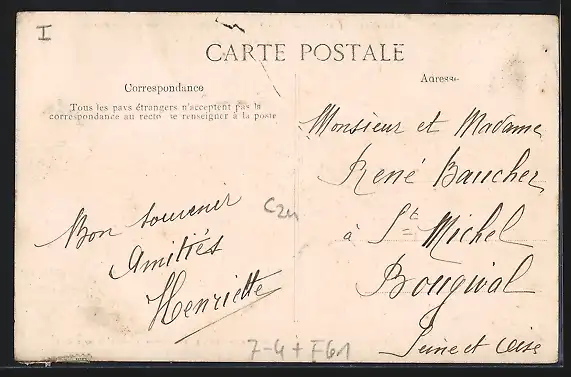 I
CARTE POSTALE
Correspondance
Tous les pays étrangers n'acceptent pas la
correspondance au recto se renseigner à la poste
Bon souvenir
Amitiés
Henriette
Adresse
Monsieur et Madame
René Baucher
à St Michel
Bougival
Seine et Oise
7-4 + F61